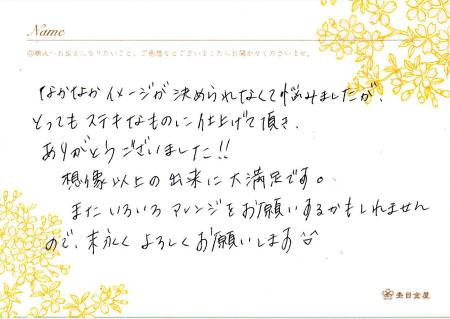 Name
◎職人へお伝えになりたいこと、ご感想などございましたらお聞かせくださいませ。
なかなかイメージが決められなくて悩みましたが、
とってもステキなものに仕上げて頂き、
ありがとうございました!!
想像以上の出来に大満足です。
またいろいろアレンジをお願いするかもしれません
ので、末永くよろしくお願いします
杢目金屋